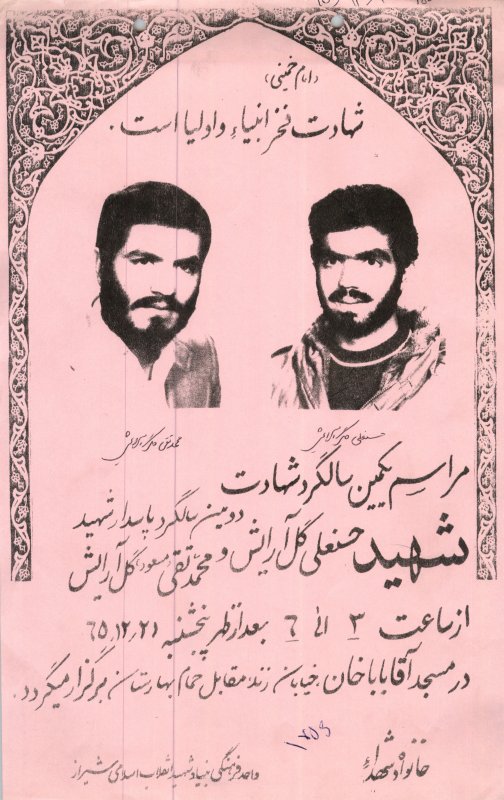 «امام خمینی»
شهادت فخر انبیاء و اولیا است.
حسنعلی گل آرایش
محمدتقی گل آرایش
مراسم یکمین سالگرد شهادت
دومین سالگرد پاسدار شهید
شهید حسنعلی گل آرایش و محمدتقی مسعود گل آرایش
از ساعت ۳ الی ۶ بعد از ظهر پنجشنبه ۶۵٫۱۲٫۲۱
در مسجد آقا باباخان، خیابان زند مقابل حمام بهارستان برگزار میگردد.
خانواده شهداء
واحد فرهنگی بنیاد شهید انقلاب اسلامی شیراز